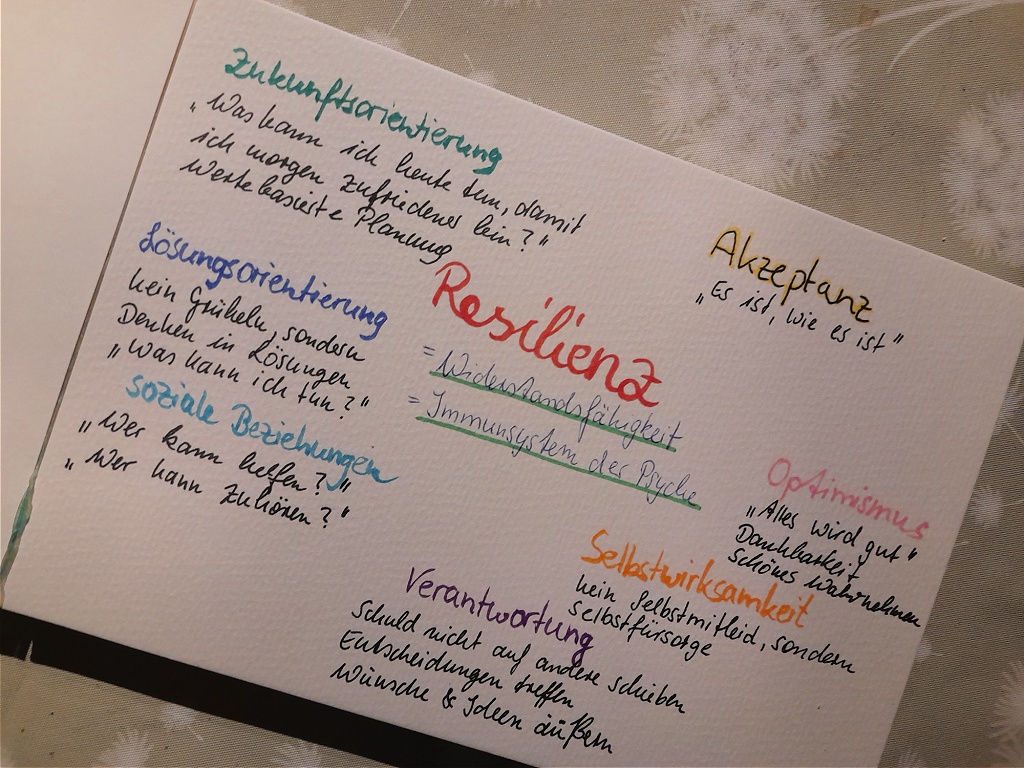 Zukunftsorientierung
„Was kann ich heute tun, damit
ich morgen zufriedener bin?"
Wertebasierte Planung
Lösungsorientierung
kein grübeln, sondern
Denken in Lösungen
„Was kann ich tun?"
soziale Beziehungen
„Wer kann helfen?"
„Wer kann zuhören?"
Resilienz
= Widerstandsfähigkeit
= Immunsystem der Psyche
Akzeptanz
„Es ist, wie es ist"
Optimismus
„Alles wird gut"
Dankbarkeit
schönes Wahrnehmen
Selbstwirksamkeit
kein Selbstmitleid, sondern
selbstfürsorge
Verantwortung
Schuld nicht auf andere schieben
Entscheidungen treffen
Wünsche & Ideen äußern